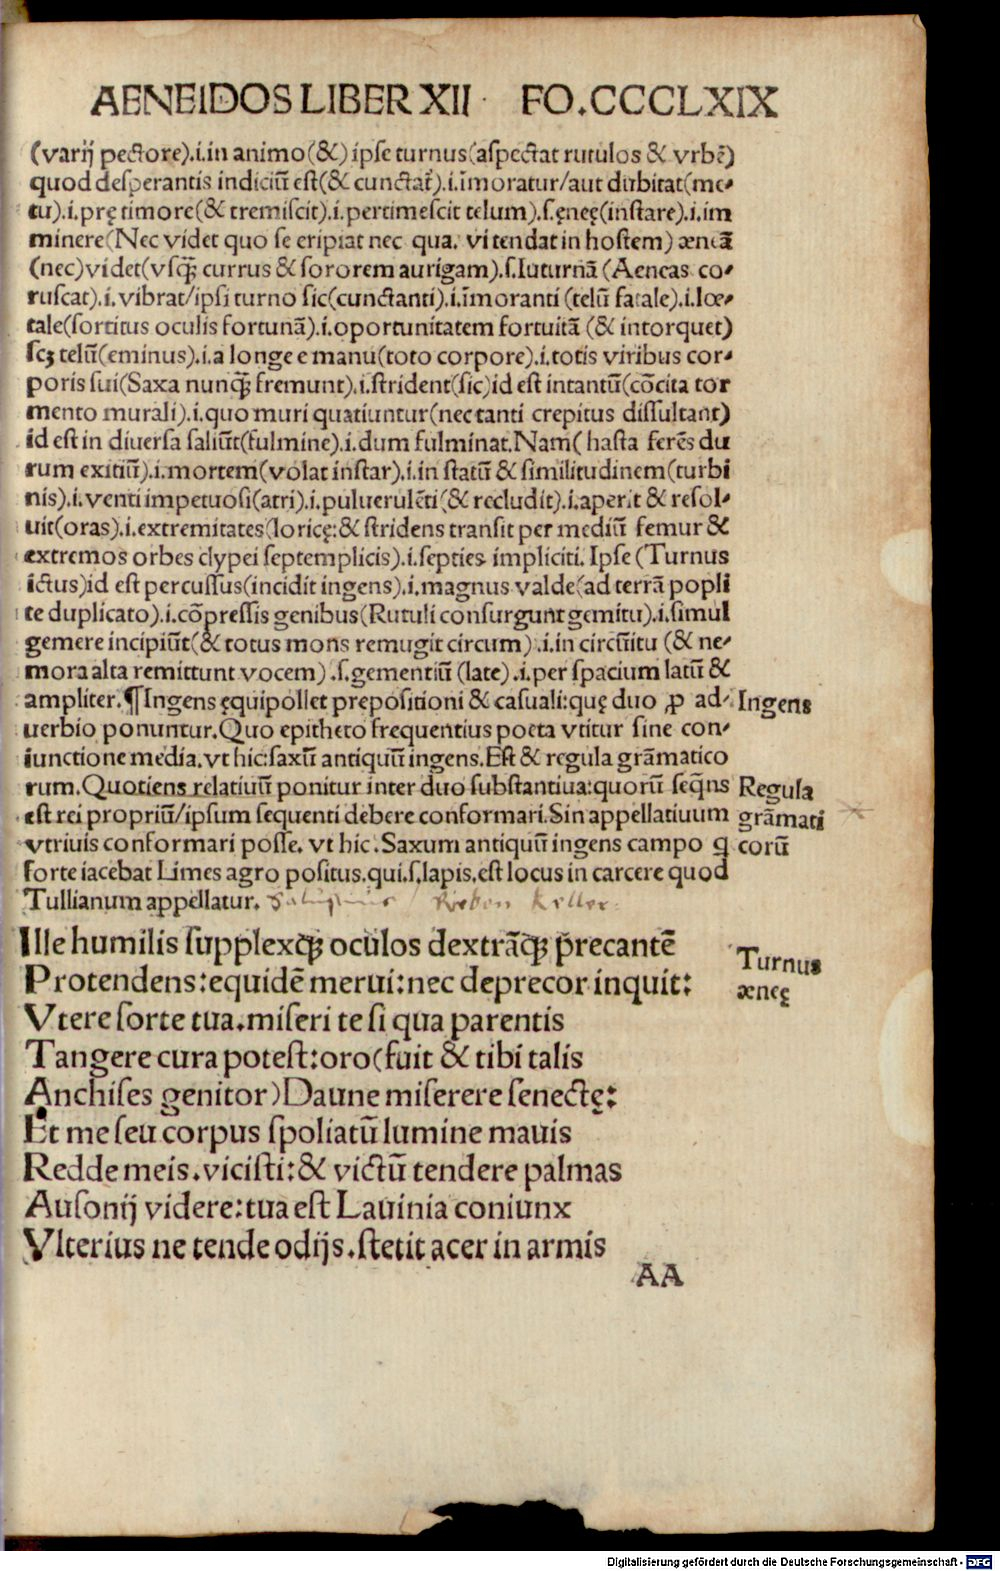 AENEIDOS LIBER XII · FO.CCCCLXIX
(varij pectore).i.in animo(&) ipse turnus(aspectat rutulos & vrbē)
quod desperantis indiciū est(& cunctat̄).i.īmoratur/aut dubitat(me⸗
tu).i.prę timore(& tremiscit).i.pertimescit telum).s.ęneę(instare).i.im
minere(Nec videt quo se eripiat nec qua. vi tendat in hostem) æneā
(nec)videt(vsq̄ꝫ currus & sororem aurigam).s.Iuturnā (Aeneas co⸗
ruscat).i.vibrat/ipsi turno sic(cunctanti).i.īmoranti (telū fatale).i.lœ⸗
tale(sortitus oculis fortunā).i.oportunitatem fortuitā (& intorquet)
scꝫ telū(eminus).i.a longe e manu(toto corpore).i.totis viribus cor⸗
poris sui(Saxa nunq̄ꝫ fremunt).i.strident(sic)id est intantū(cōcita tor
mento murali).i.quo muri quatiuntur(nec tanti crepitus dissultant)
id est in diuersa saliūt(fulmine).i.dum fulminat.Nam( hasta ferēs du
rum exitiū).i.mortem(volat instar).i.in statū & similitudinem(turbi
nis).i.venti impetuosi(atri).i.puluerulēti(& recludit).i.aperit & resol⸗
uit(oras).i.extremitates(loricę:& stridens transit per mediū femur &
extremos orbes clypei septemplicis).i.septies impliciti. Ipse (Turnus
ictus)id est percussus(incidit ingens).i.magnus valde(ad terrā popli
te duplicato).i.cōpressis genibus(Rutuli consurgunt gemitu).i.simul
gemere incipiūt(& totus mons remugit circum).i.in circūitu (& ne⸗
mora alta remittunt vocem).s.gementiū (late).i.per spacium latū &
ampliter.¶Ingens ęquipollet prepositioni & casuali:quę duo ꝓ ad⸗ Ingens
uerbio ponuntur.Quo epitheto frequentius poeta vtitur sine con⸗
iunctione media.vt hic:saxū antiquū ingens.Est & regula grāmatico
rum.Quotiens relatiuū ponitur inter duo substantiua:quorū seq̄ns Regula
est rei propriū/ipsum sequenti debere conformari.Sin appellatiuum grāmati
vtriuis conformari posse. vt hic.Saxum antiquū ingens campo q̄ corū
forte iacebat Limes agro positus.qui.s.lapis.est locus in carcere quod
Tullianum appellatur. Salustius / Rieben Keller.
Ille humilis supplexq̄ꝫ oculos dextrāq̄ꝫ p̄recantē
Protendens:equidē merui:nec deprecor inquit: Turnus
æneę
Vtere sorte tua.miseri te si qua parentis
Tangere cura potest:oro(fuit & tibi talis
Anchises genitor)Daune miserere senectę:
Et me seu corpus spoliatū lumine mauis
Redde meis.vicisti:& victū tendere palmas
Ausonij videre:tua est Lauinia coniunx
Vlterius ne tende odijs.stetit acer in armis
AA
Digitalisierung gefördert durch die Deutsche Forschungsgemeinschaft - DFG